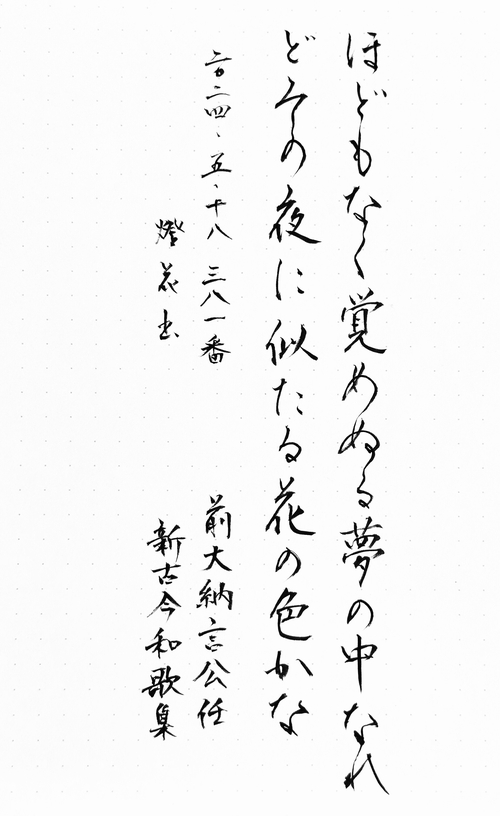 ほどもなく覚めぬる夢の中なれ
どその夜に似たる花の色かな
二〇二四、五、十八 三八一番
燈花
前大納言公任
新古今和歌集